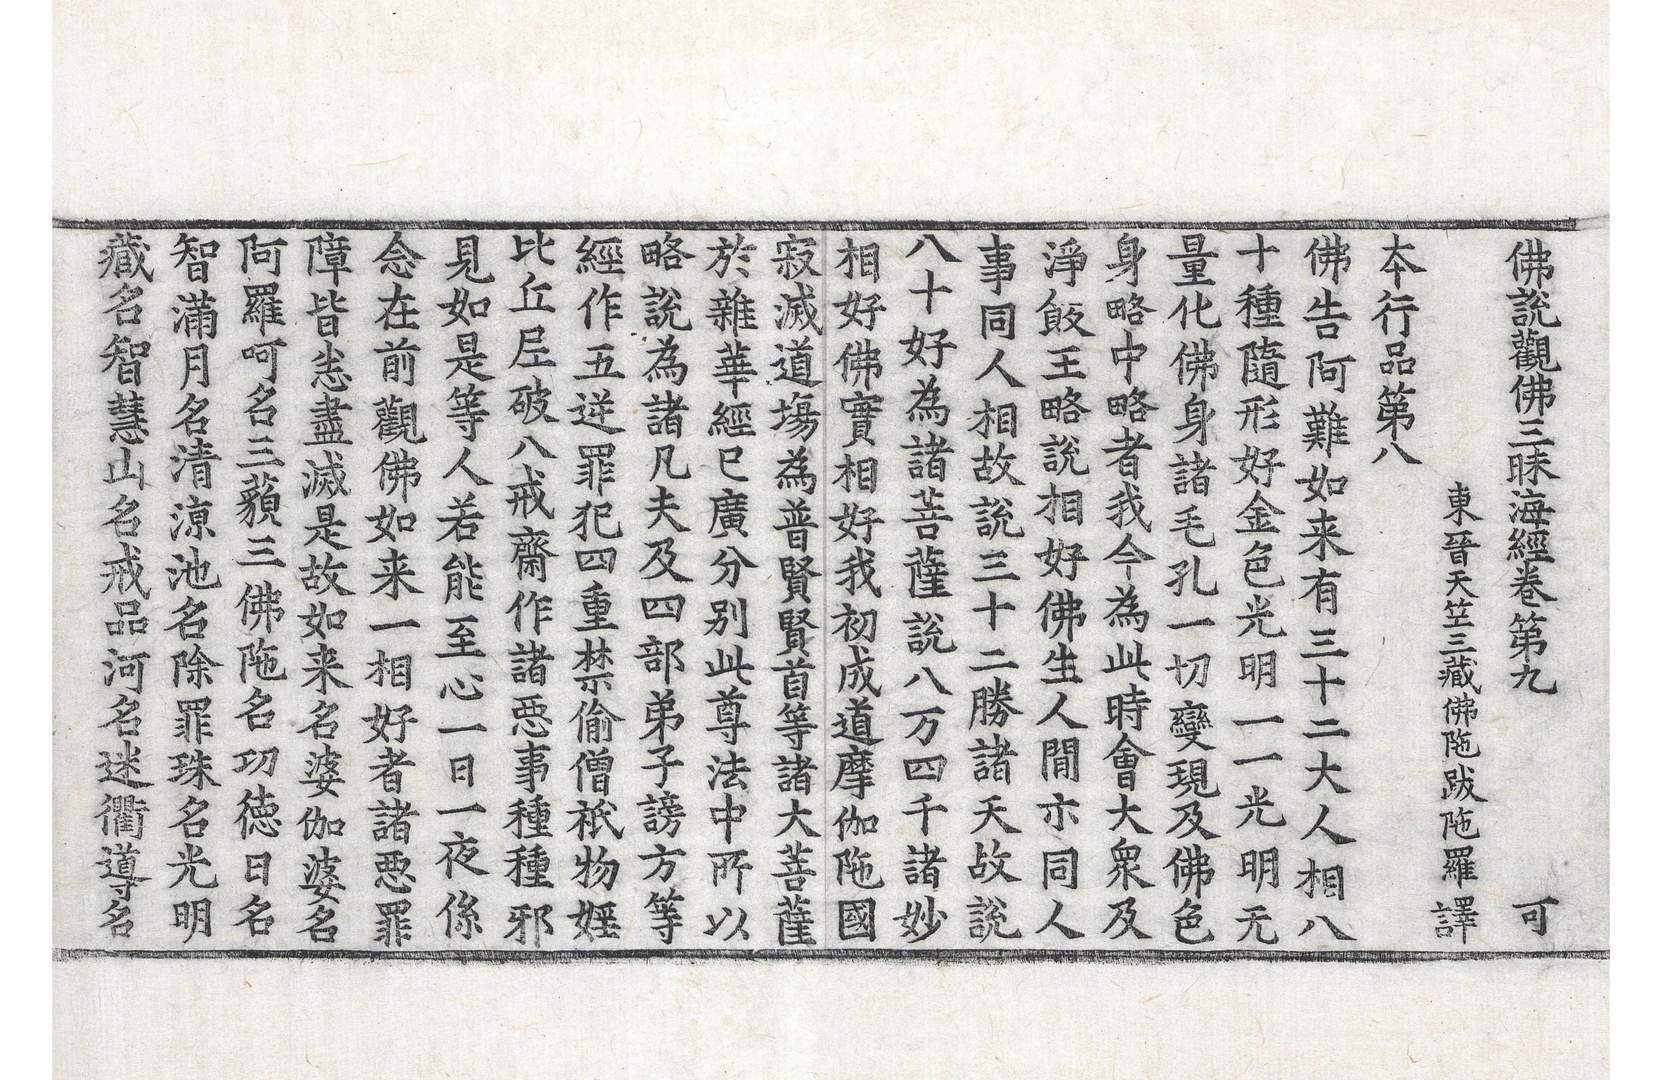 佛說觀佛三昧海經卷第九　可
東晉天竺三藏佛陁跋陁羅譯
本行品第八
佛告阿難如来有三十二大人相八
十種隨形好金色光明一一光明无
量化佛身諸毛孔一切變現及佛色
身略中略者我今為此時會大衆及
淨飯王略說相好佛生人間亦同人
事同人相故說三十二勝諸天故說
八十好為諸菩薩說八万四千諸妙
相好佛實相好我初成道摩伽陁國
寂滅道場為普賢賢首等諸大菩薩
於雜華經已廣分別此尊法中所以
略說為諸凡夫及四部弟子謗方等
經作五逆罪犯四重禁偷僧祇物婬
比丘尼破八戒齋作諸惡事種種邪
見如是等人若能至心一日一夜係
念在前觀佛如来一相好者諸惡罪
障皆悉盡滅是故如来名婆伽婆名
阿羅呵名三藐三佛陁名功德日名
智滿月名清涼池名除罪珠名光明
藏名智慧山名戒品河名迷衢導名